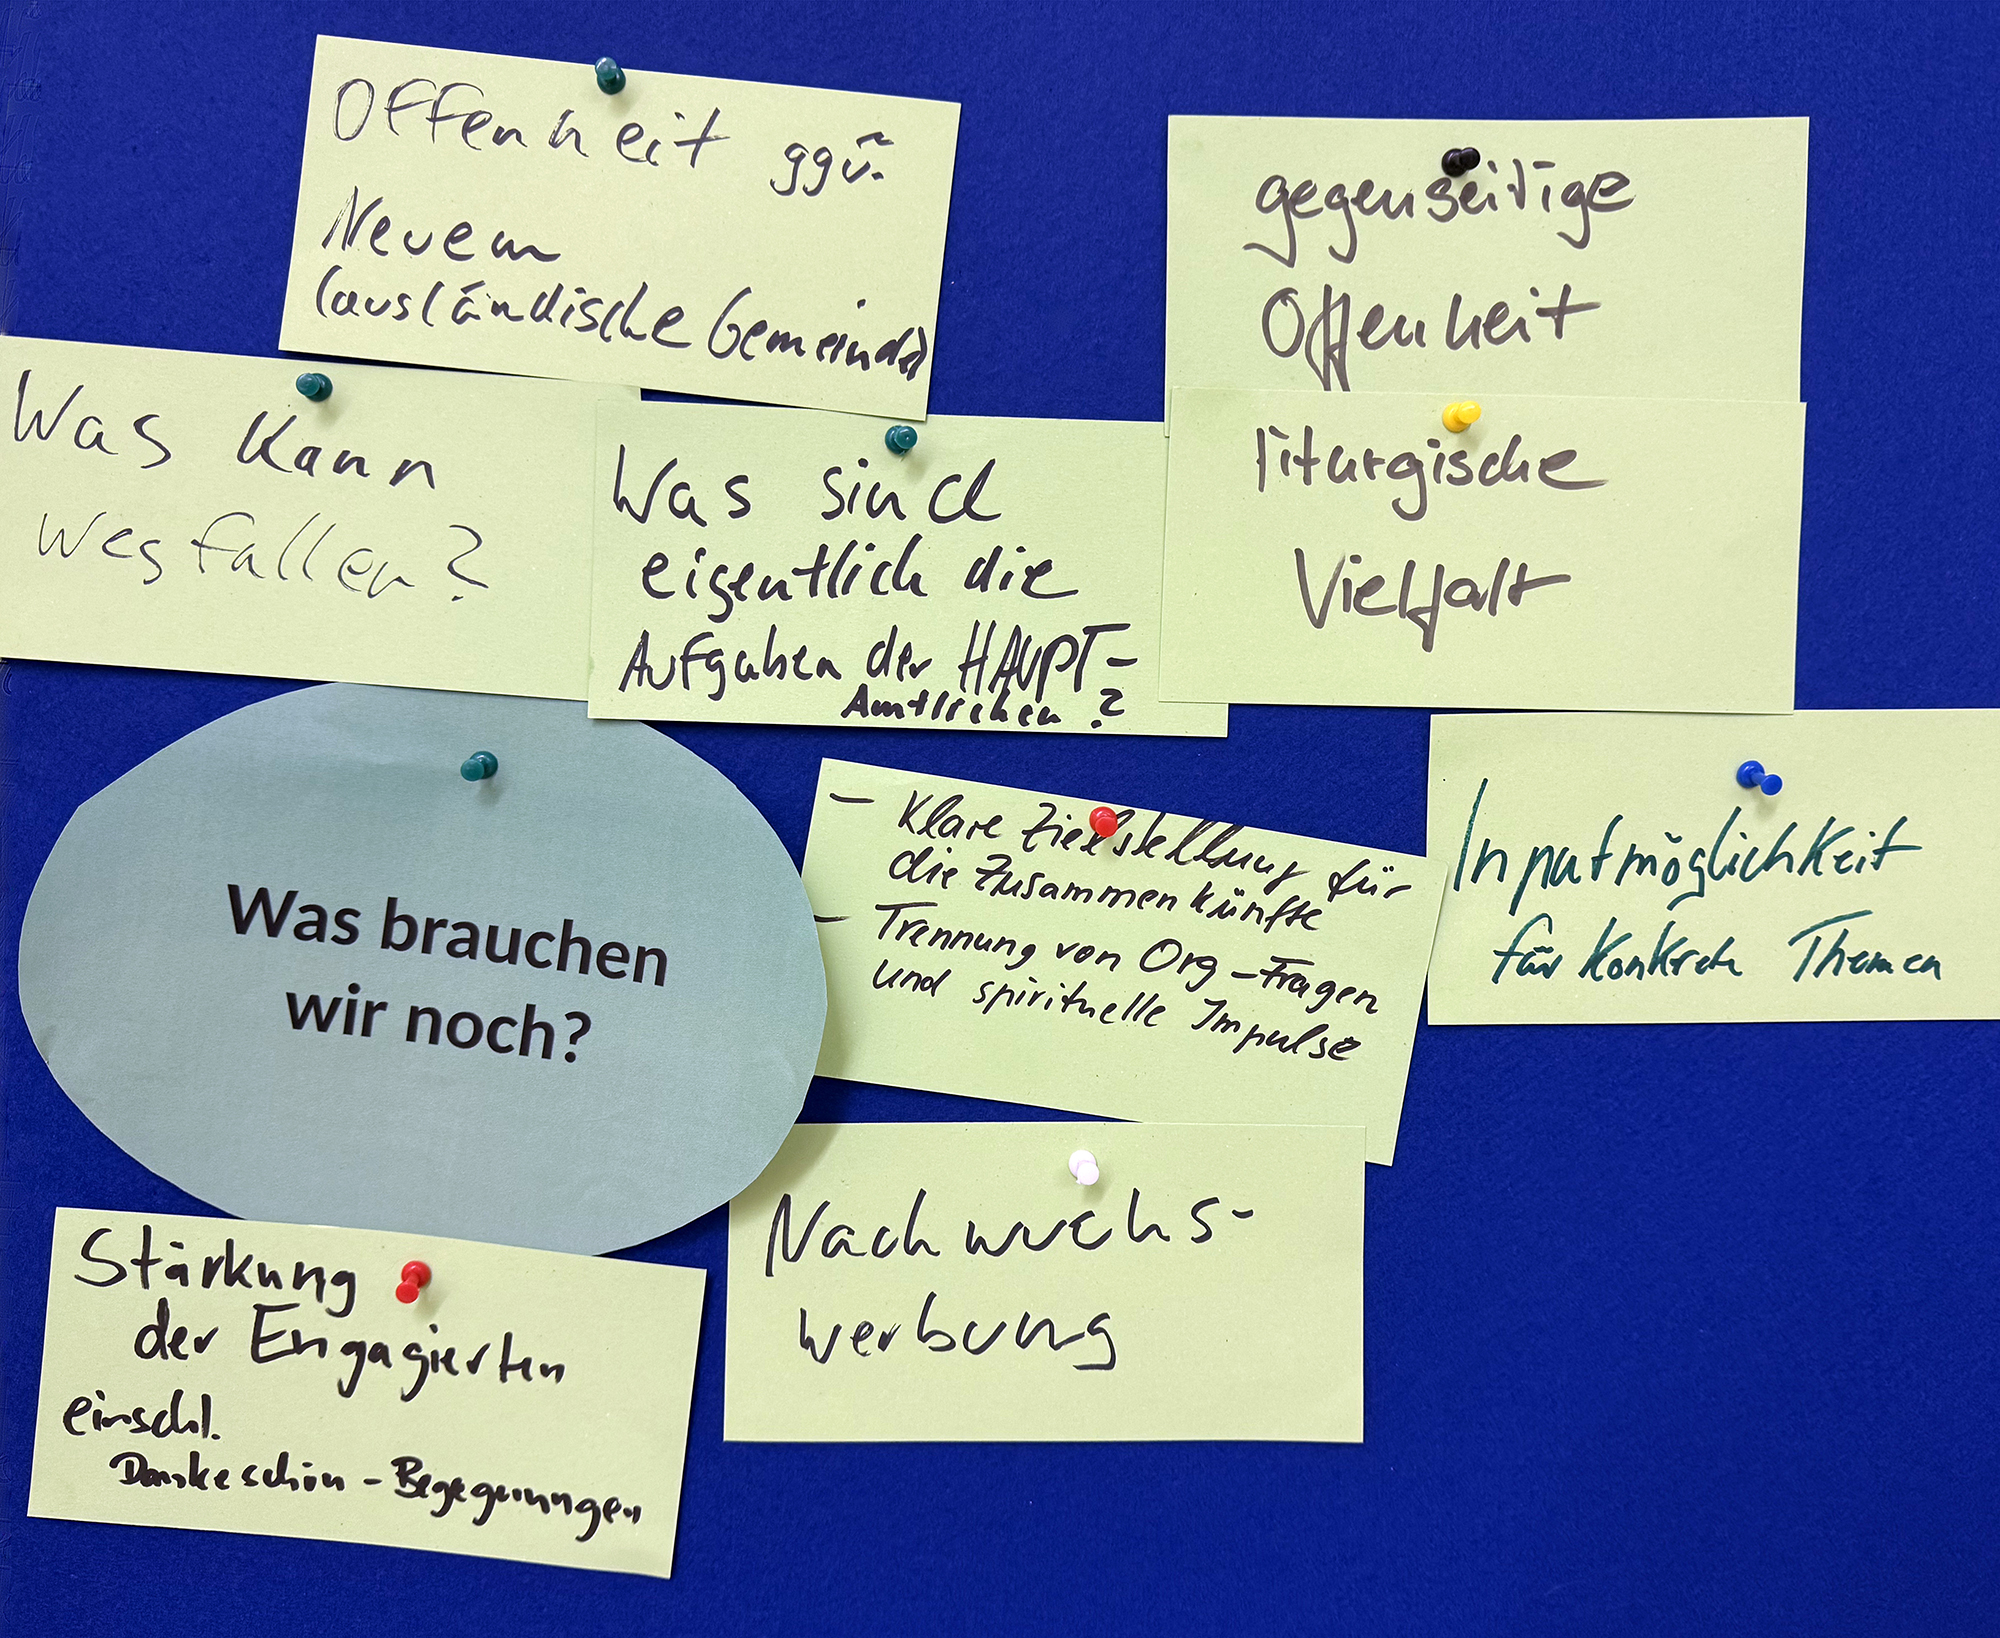 Offenheit ggü.
Neuem
(ausländische Gemeinde)
gegenseitige
Offenheit
Was kann
wegfallen?
Was sind
eigentlich die
Aufgaben der HAUPT-
Amtlichen?
liturgische
Vielfalt
Was brauchen
wir noch?
- Klare Zielstellung für
die Zusammenkünfte
- Trennung von Org-Fragen
und spirituelle Impulse
Inputmöglichkeit
für konkrete Themen
Nachwuchs-
werbung
Stärkung
der Engagierten
einschl.
Dankeschön-Begegnungen